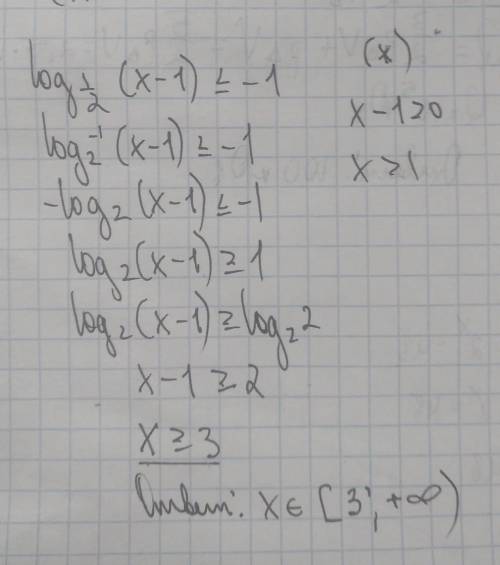 log_{1/2} (x-1) ≤ -1
log_{2^{-1}} (x-1) ≥ -1
-log_2 (x-1) ≤ -1
log_2 (x-1) ≥ 1
log_2 (x-1) ≥ log_2 2
x-1 ≥ 2
x ≥ 3
Ответ: x ∈ [3; +∞)
(x)
x-1>0
x>1